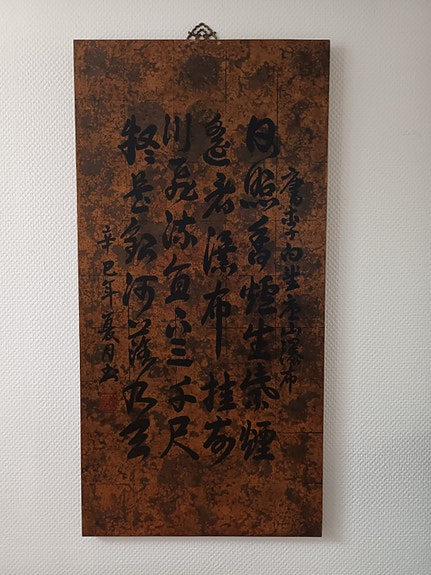 唐李白望廬山瀑布
日照香爐生紫煙
遙看瀑布挂前
川飛流直下三千尺
疑是銀河落九天
辛巳年夏月書